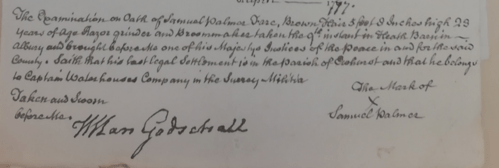 1797.
The Examination on Oath of Samuel Palmer Dark Brown Hair 5 foot 8 Inches high 23
Years of Age Razor grinder and Broommaker taken the 9th instant in Heath Barn in
Albury and brought before Me one of his Majestys Justices of the Peace in and for the said
County. Saith that his last legal Settlement is in the Parish of and that he belongs
to Captain Waterhouses Company in the Surrey Militia
Taken and Sworn The Mark of
before Me. X
Wm Man Godschall Samuel Palmer